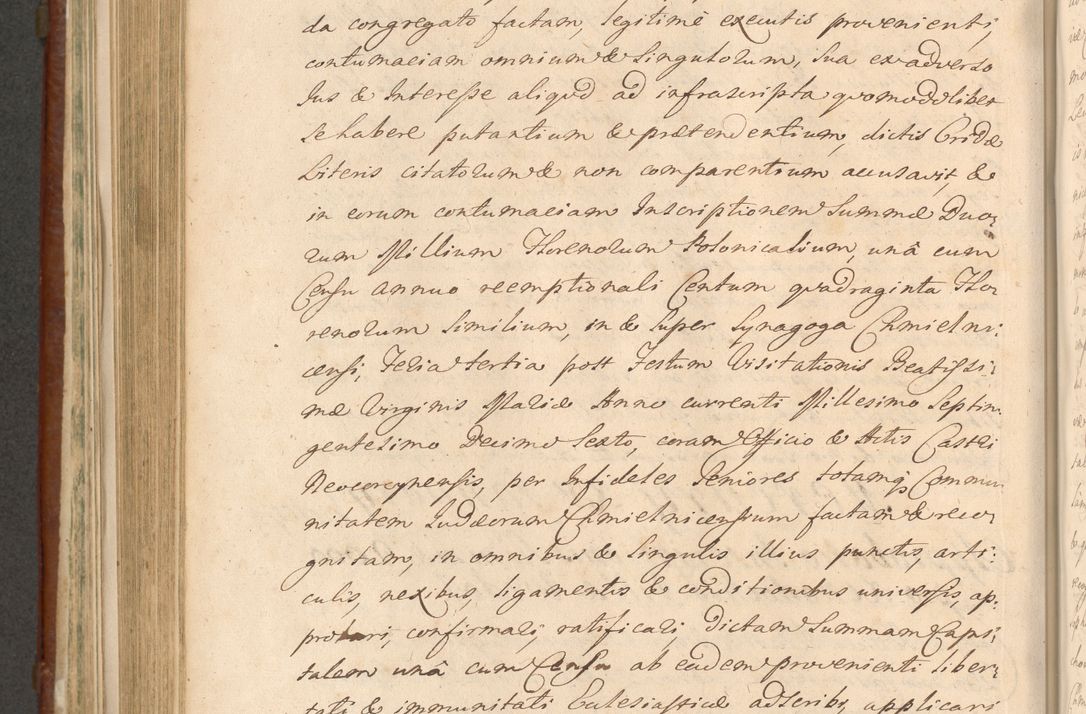 da congregato factam, legitimè executis provenienti,
contumaciam omnium & Singulorum, sua ex adverso
Jus & Interesse aliqvod ad infrascripta qvomodolibet
se habere putantium & prætendentium, dictis Cridæ
Literis citatorum & non comparentium accusavit, &
in eorum contumaciam Inscriptionem Summæ Duo,
rum Millium Florenorum Polonicalium, unâ cum
Censu annuo reemptionali Centum qvadraginta Flo,
renorum similium, in & super Synagoga Chmielni,
censi, Feria tertia post Festum Visitationis Beatissi,
mæ Virginis Mariæ Anno currenti Millesimo Septin,
gentesimo Decimo Sexto, coram Officio & Actis Castri
Neocorcynensis, per Infideles Seniores totamq; Commu
nitatem Judæorum Chmielnicensium factam & reco,
gnitam, in omnibus & singulis illius punctis, arti,
culis, nexibus, ligamentis & conditionibus universis, ap,
probari, confirmari, ratificari, dictam Summam Capi,
talem unâ cum Censu ab eadem provenienti liber,
tati & immunitati Ecclesiasticæ adscribi, applicari